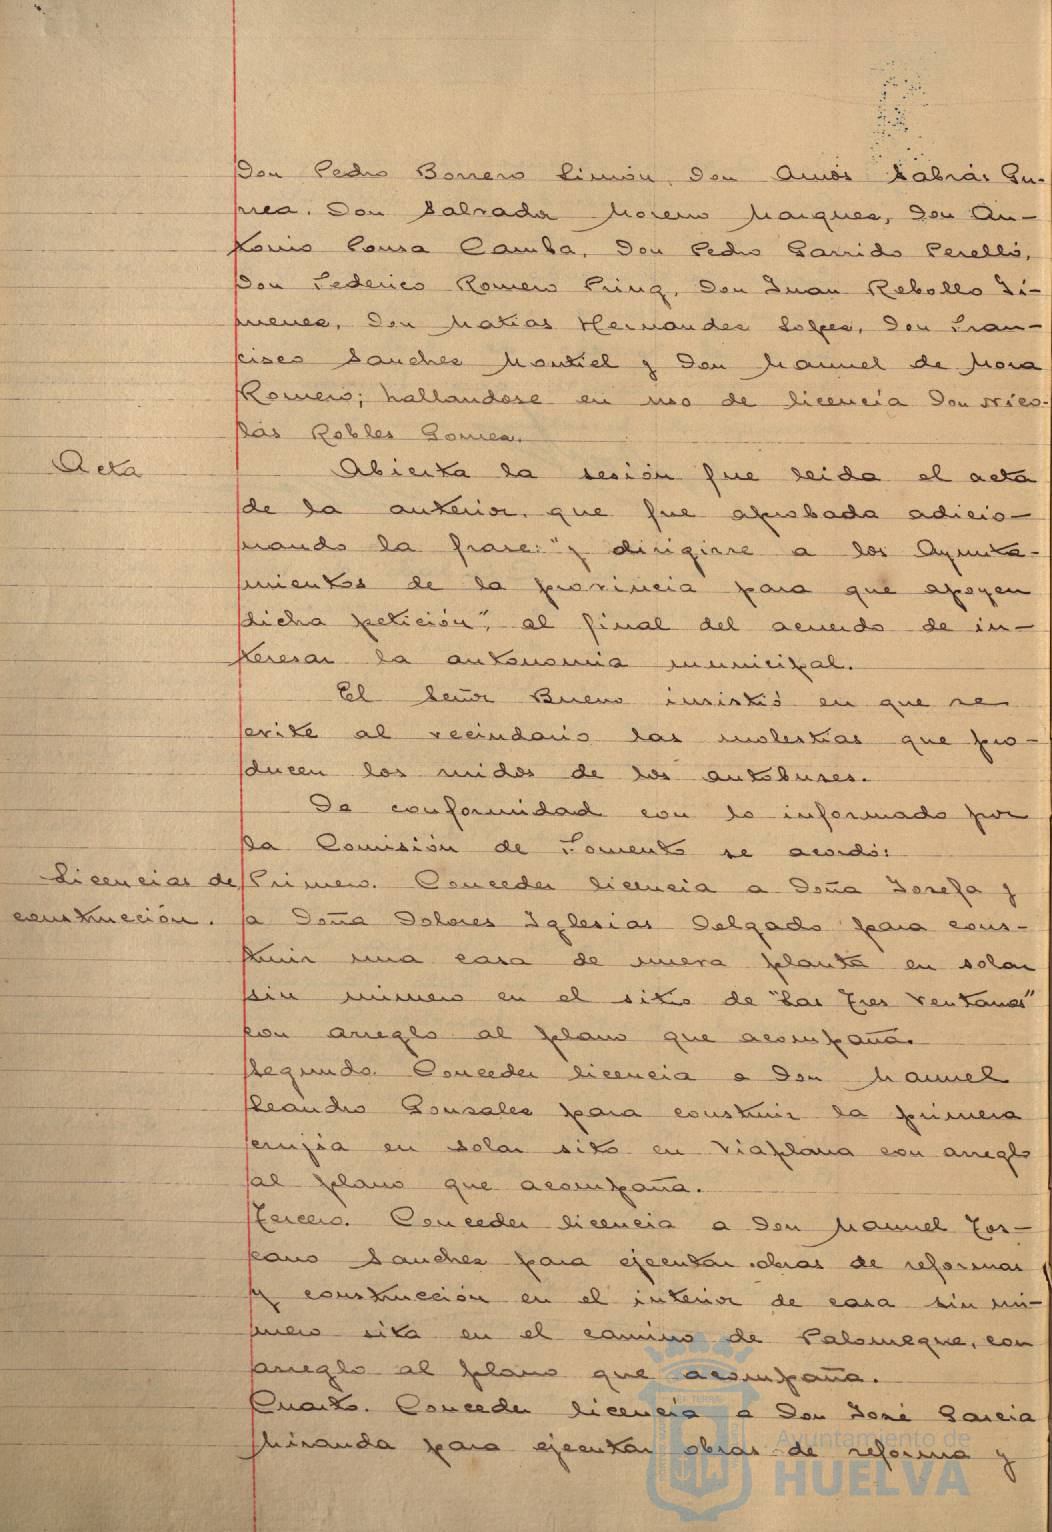 Don Pedro Borrero Limón, Don Amós Sabrás Gu-
rrea, Don Salvador Moreno Marquez, Don An-
tonio Pousa Camba, Don Pedro Garrido Perelló,
Don Federico Romero Pring, Don Juan Rebollo Ji-
menez, Don Matias Hernandez Lopez, Don Fran-
cisco Sanchez Montiel y Don Manuel de Mora
Romero; hallandose en uso de licencia Don Nico-
lás Robles Gomez.
Acta
Abierta la sesión fue leida el acta
de la anterior, que fue aprobada adicio-
nando la frase: "y dirigirse a los Ayunta-
mientos de la provincia para que apoyen
dicha petición", al final del acuerdo de in-
teresar la autonomia municipal.
El Señor Bueno insistió en que se
evite al vecindario las molestias que pro-
ducen los ruidos de los autobuses.
De conformidad con lo informado por
la Comisión de Fomento se acordó:
Licencias de
construcción.
Primero. Conceder licencia a Doña Josefa y
a Doña Dolores Iglesias Delgado para cons-
truir una casa de nueva planta en solar
sin número en el sitio de "Las Tres Ventanas"
con arreglo al plano que acompaña.
Segundo. Conceder licencia a Don Manuel
Leandro Gonzalez para construir la primera
crujia en solar sito en Viaplana con arreglo
al plano que acompaña.
Tercero. Conceder licencia a Don Manuel Tos-
cano Sanchez para ejecutar obras de reformas
y construcción en el interior de casa sin nú-
mero sita en el camino de Palomeque, con
arreglo al plano que acompaña.
Cuarto. Conceder licencia a Don José Garcia
Miranda para ejecutar obras de reforma y
Ayuntamiento de
HUELVA